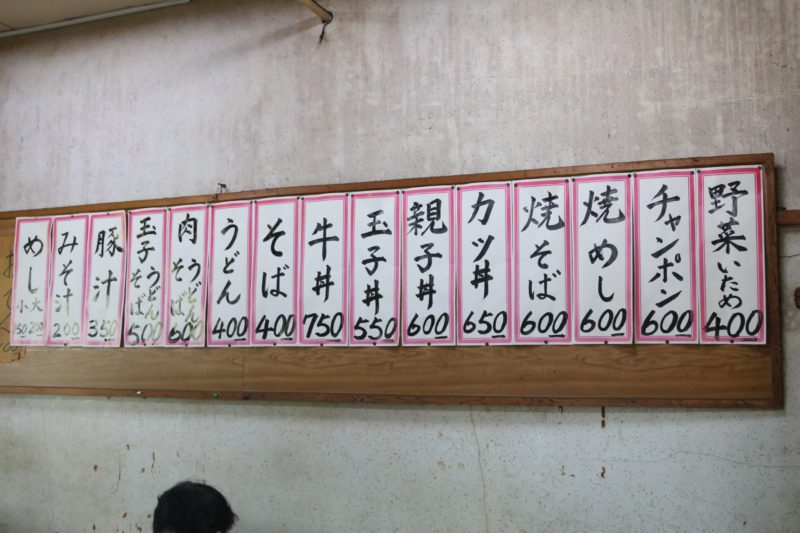 野菜いため 400
チャンポン 600
焼めし 600
焼そば 600
カツ丼 650
親子丼 600
玉子丼 550
牛丼 750
そば 400
うどん 400
肉うどんそば 600
玉子うどんそば 500
豚汁 350
みそ汁 200
めし 小150 大200
おでん